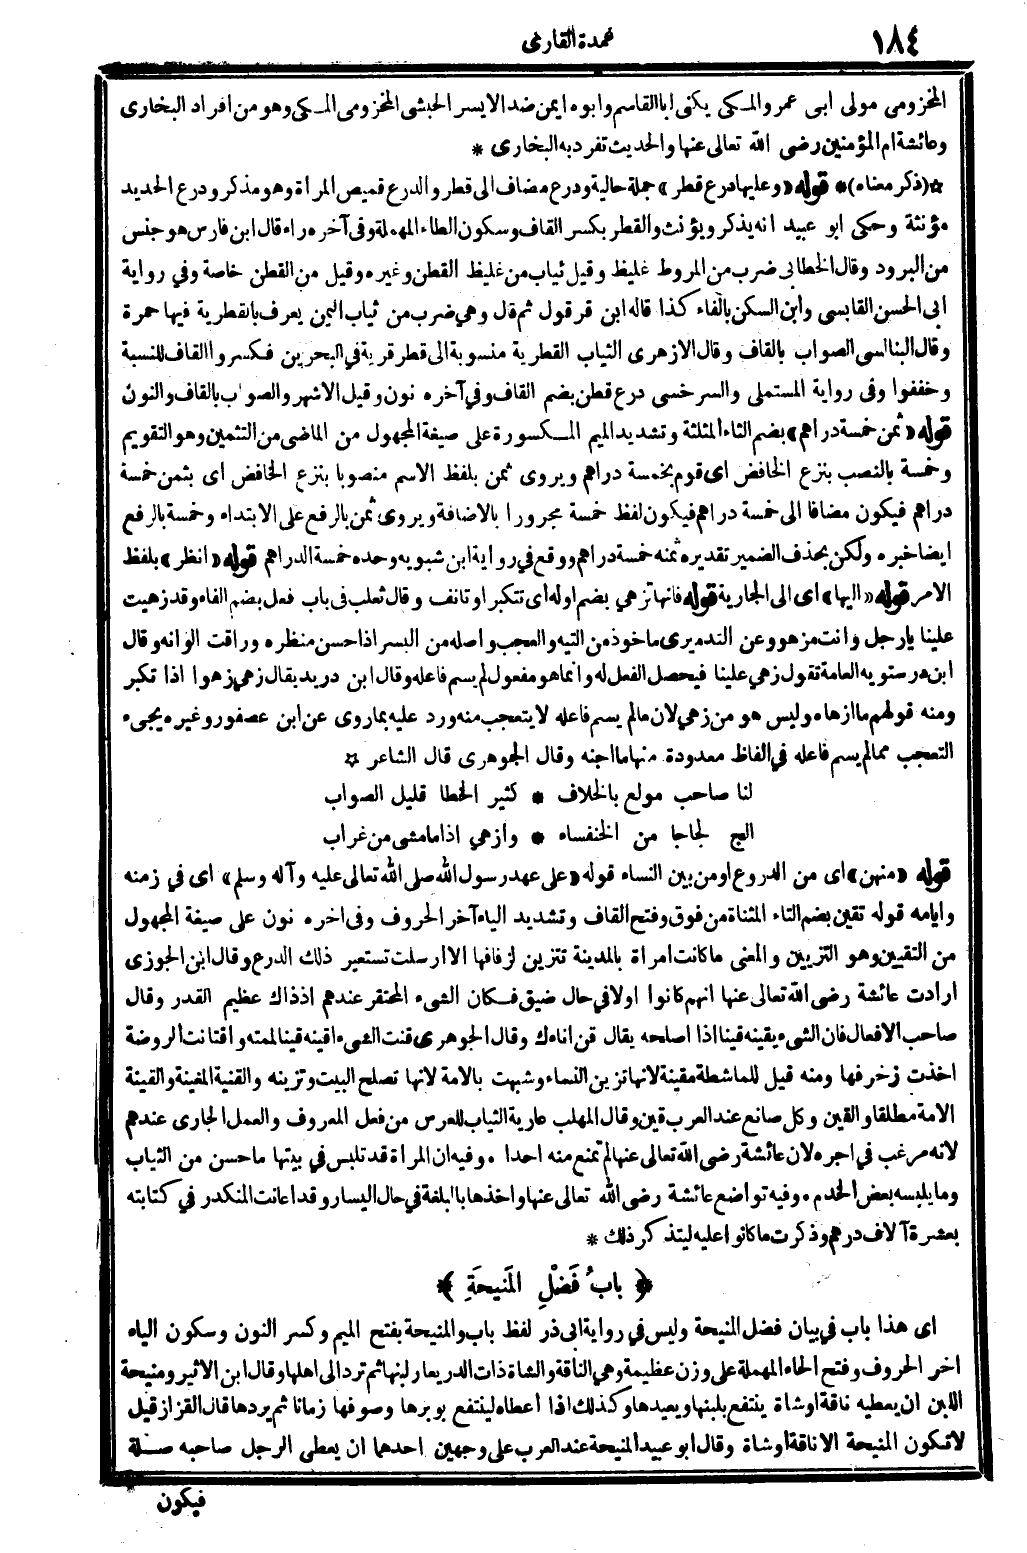 ١٨٤
عمدة القارئ
المخزومى مولى ابى عمرو المكى يكنى ابا القاسم وابوه ايمن ضد الايسر الحبشى المخزومى المكى وهو من افراد البخارى
وعائشة ام المؤمنين رضى الله تعالى عنها والحديث تفرد به البخارى *
*(ذكر معناه)* قوله «وعليها درع قطر» جملة حالية ودرع مضاف الى قطر والدرع قميص المرأة وهو مذكر ودرع الحديد
مؤنثة وحكى ابو عبيد انه يذكر ويؤنث والقطر بكسر القاف وسكون الطاء المهملة وفى آخره راء قال ابن فارس هو جنس
من البرود وقال الخطابى ضرب من المروط غليظ وقيل ثياب من غليظ القطن وغيره وقيل من القطن خاصة وفي رواية
ابى الحسن القابسى وابن السكن بالفاء كذا قاله ابن قرقول ثم قال وهي ضرب من ثياب اليمن يعرف بالقطرية فيها حمرة
وقال البناسى الصواب بالقاف وقال الازهرى الثياب القطرية منسوبة الى قطر قرية في البحرين فكسروا القاف للنسبة
وخففوا وفى رواية المستملى والسرخسى درع قطن بضم القاف وفي آخره نون وقيل الاشهر والصواب بالقاف والنون
قوله «ثمن خمسة دراهم» بضم الثاء المثلثة وتشديد الميم المكسورة على صيغة المجهول من الماضى من التثمين وهو التقويم
وخمسة بالنصب بنزع الخافض اى قوم بخمسة دراهم ويروى ثمن بلفظ الاسم منصوبا بنزع الخافض اى بثمن خمسة
دراهم فيكون مضافا الى خمسة دراهم فيكون لفظ خمسة مجرورا بالاضافة ويروى ثمن بالرفع على الابتداء وخمسة بالرفع
ايضا خبره ولكن بحذف الضمير تقديره ثمنه خمسة دراهم ووقع في رواية ابن شبويه وحده خمسة الدراهم قوله «انظر» بلفظ
الامر قوله «اليها» اى الى الجارية قوله فانها تزهي بضم اوله أى تتكبر او تانف وقال ثعلب فى باب فعل بضم الفاء وقد زهيت
علينا يا رجل وانت مزهو وعن التدميرى ماخوذ من التيه والعجب واصله من البسر اذا حسن منظره وراقت الوانه وقال
ابن درستويه العامة تقول زهي علينا فيحصل الفعل له وانما هو مفعول لم يسم فاعله وقال ابن دريد يقال زهي زهوا اذا تكبر
ومنه قولهم ما ازهاه وليس هو من زهي لان مالم يسم فاعله لا يتعجب منه ورد عليه بما روى عن ابن عصفور وغيره يجىء
التعجب مما لم يسم فاعله في الفاظ معدودة منها ما اجنه وقال الجوهرى قال الشاعر *
لنا صاحب مولع بالخلاف * كثير الخطا قليل الصواب
الج لجاجا من الخنفساء * وازهي اذا ما مشى من غراب
قوله «منهن» اى من الدروع او من بين النساء قوله «على عهد رسول الله صلى الله تعالى عليه وآله وسلم» اى في زمنه
وايامه قوله تقين بضم التاء المثناة من فوق وفتح القاف وتشديد الياء آخر الحروف وفى اخره نون على صيغة المجهول
من التقيين وهو التزيين والمعنى ما كانت امرأة بالمدينة تتزين لزفافها الا ارسلت تستعير ذلك الدرع وقال ابن الجوزى
ارادت عائشة رضى الله تعالى عنها انهم كانوا اولا في حال ضيق فكان الشىء المحتقر عندهم اذذاك عظيم القدر وقال
صاحب الافعال فان الشىء يقينه قينا اذا اصلحه يقال قن اناءك وقال الجوهرى قنت الشىء اقينه قينا لممته واقتانت الروضة
اخذت زخرفها ومنه قيل للماشطة مقينة لانها تزين النساء وشبهت بالامة لانها تصلح البيت وتزينه والقنية المغنية والقينة
الامة مطلقا والقين وكل صانع عند العرب قين وقال المهلب عارية الثياب للعرس من فعل المعروف والعمل الجارى عندهم
لانه مرغب في اجره لان عائشة رضى الله تعالى عنها لم تمنع منه احدا . وفيه ان المرأة قد تلبس في بيتها ما حسن من الثياب
وما يلبسه بعض الخدم . وفيه تواضع عائشة رضى الله تعالى عنها واخذها بالبلغة في حال اليسار وقد اعانت المنكدر في كتابته
بعشرة آلاف درهم وذكرت ما كانوا عليه ليتذكر ذلك *
﴿ بابُ فَضْلِ المَنيحَةِ ﴾
اى هذا باب في بيان فضل المنيحة وليس في رواية ابى ذر لفظ باب والمنيحة بفتح الميم وكسر النون وسكون الياء
اخر الحروف وفتح الحاء المهملة على وزن عظيمة وهي الناقة والشاة ذات الدر يعار لبنها ثم ترد الى اهلها وقال ابن الاثير ومنيحة
اللبن ان يعطيه ناقة او شاة ينتفع بلبنها ويعيدها وكذلك اذا اعطاه لينتفع بوبرها وصوفها زمانا ثم يردها قال القزاز قيل
لا تكون المنيحة الا ناقة او شاة وقال ابو عبيد المنيحة عند العرب على وجهين احدهما ان يعطى الرجل صاحبه صلة
فيكون